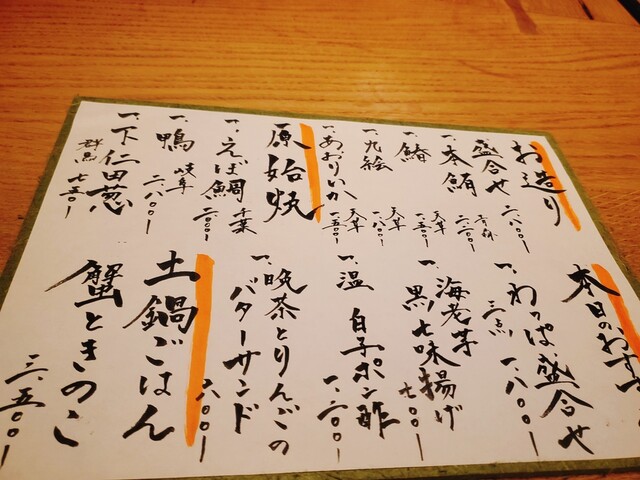 お造り
盛合せ 二、八〇〇ー
一、本鮪 二、二〇〇ー
一、鰆 天草 一、五〇〇ー
一、九絵 天草 一、八〇〇ー
一、あおりいか 天草 一、五〇〇ー
原始炉
一、えぼ鯛 千葉 二、〇〇〇ー
一、鴨 岐阜 二、八〇〇ー
一、下仁田葱 群馬 七五〇ー
本日のおす
一、わっぱ盛合せ 三点 一、八〇〇ー
一、海老芋 黒七味揚げ 七〇〇ー
一、温 白子ポン酢 一、二〇〇ー
一、晩茶とりんごの
バターサンド 六〇〇ー
土鍋ごはん
蟹ときのこ 三、五〇〇ー